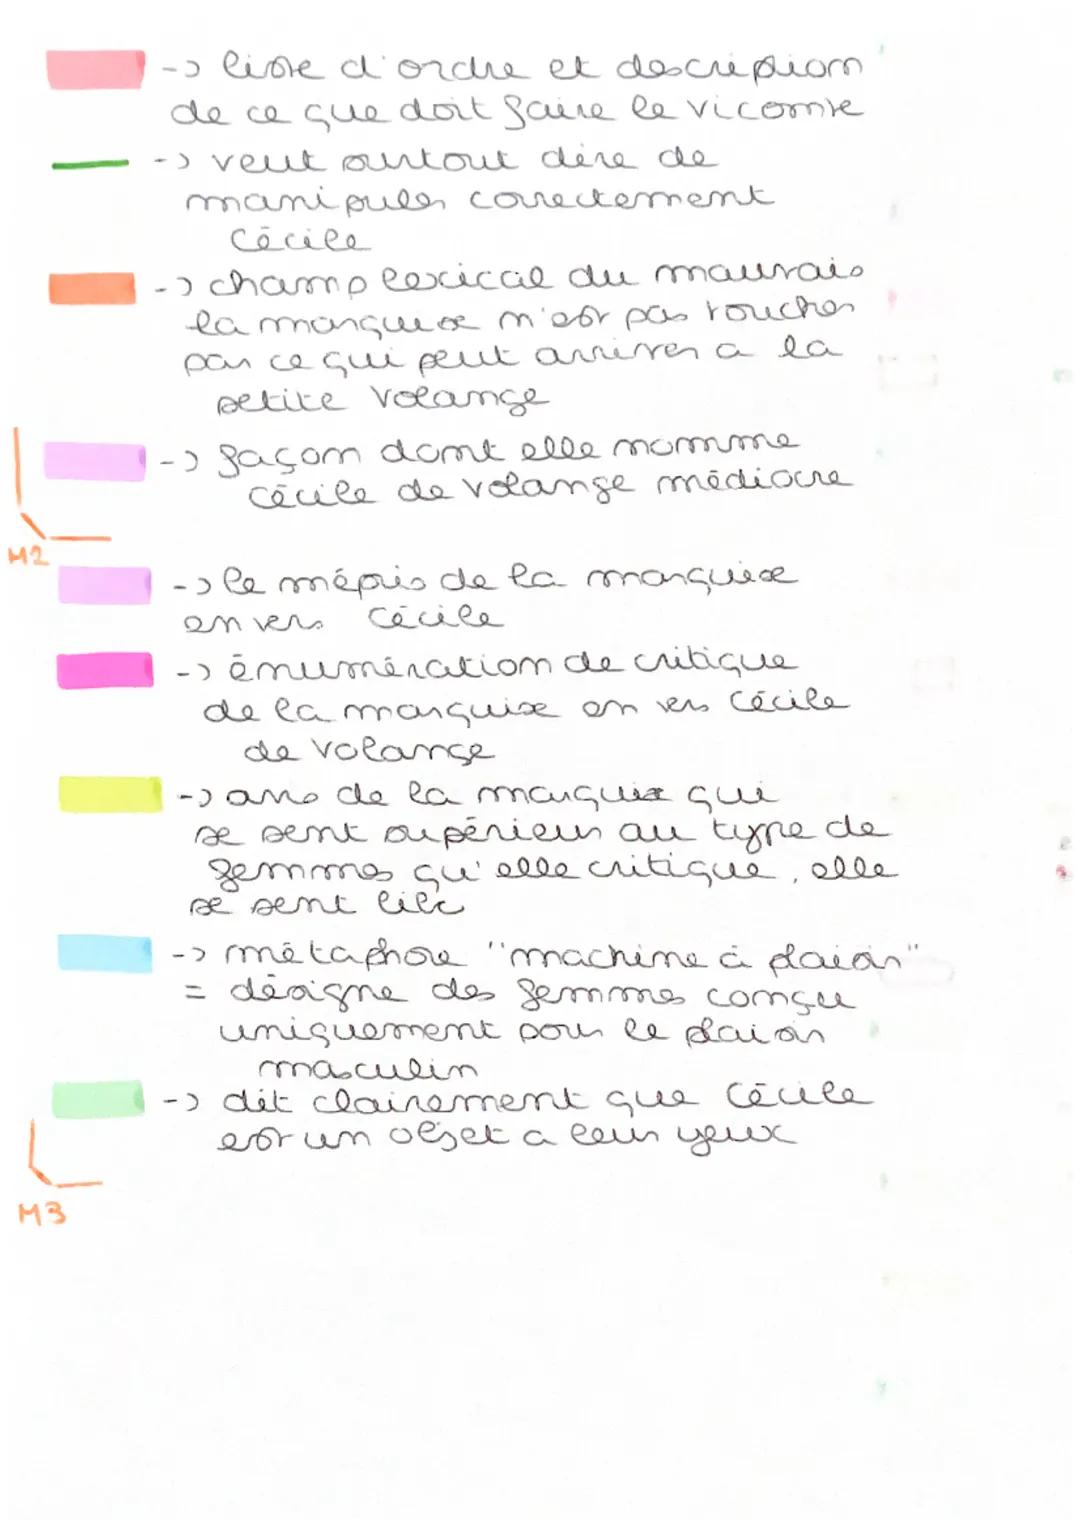 -> liste d'ordre et description
de ce que doit faire le vicomte
-> veut surtout dire de
manipuler correctement
Cécile
-> champ lexical du mauvais
la marquise n'est pas toucher
par ce qui peut arriver a la
petite Volange
-> façon dont elle nomme
Cécile de Volange médiocre
M2
-> le mépris de la marquise
envers Cécile
-> énumération de critique
de la marquise en vers Cécile
de Volange
-> avis de la marquise qui
se sent supérieur au type de
femmes qu'elle critique, elle
se sent
-> métaphore "machine à plaisir"
= désigne des femmes conçu
uniquement pour le plaisir
masculin
-> dit clairement que Cécile
est un objet a leur yeux
M3